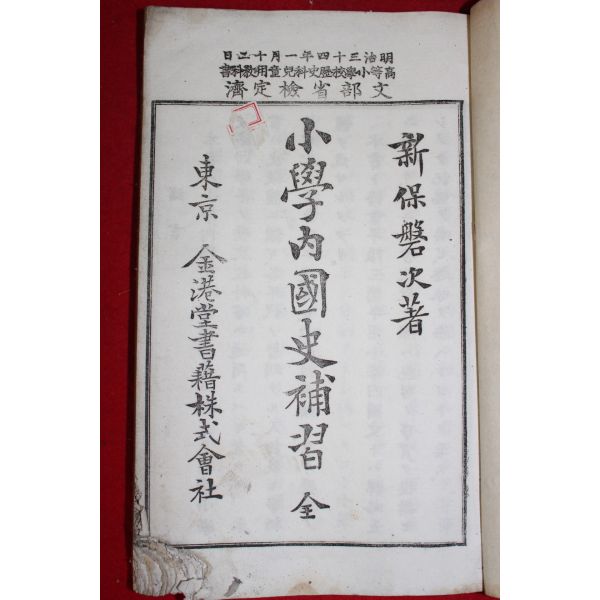 明治三十四年一月十二日
高等小學校歷史科兒童用敎科書
文部省檢定濟
新保磐次著
小學內國史補習 全
東京 金港堂書籍株式會社